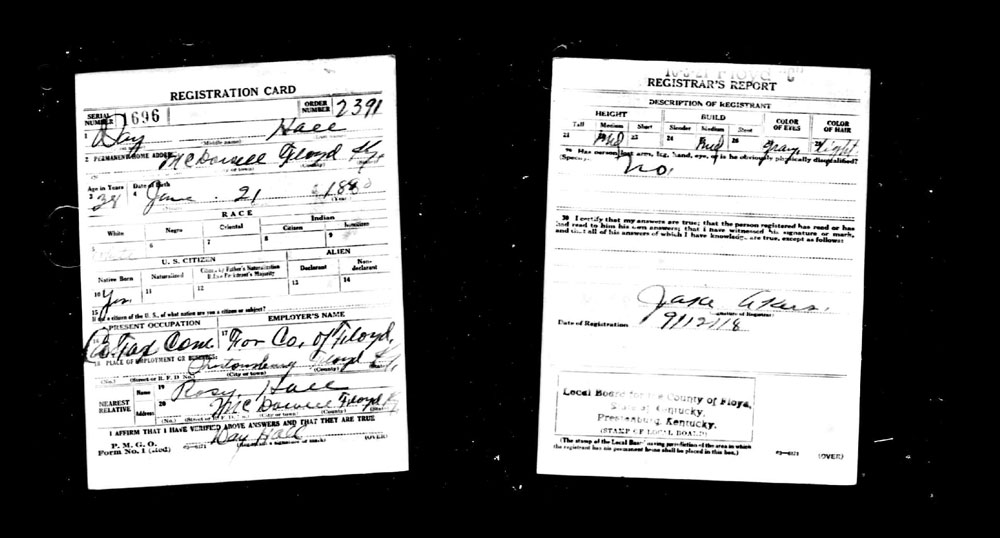 REGISTRATION CARD
SERIAL NUMBER 1696 ORDER NUMBER 2391
1 Day Hall
(Middle name)
2 PERMANENT HOME ADDRESS McDowell Floyd Ky.
(County)
Age in Years Date of Birth
3 38 4 June 21 1880
RACE
White Negro Oriental Indian
Citizen
5 6 7 8 9
U. S. CITIZEN ALIEN
Native Born Naturalized Citizen by Father's Naturalization Before Registrant's Majority Declarant Non-declarant
10 Yes. 11 12 13 14
15 If not a citizen of the U. S., of what nation are you a citizen or subject?
PRESENT OCCUPATION EMPLOYER'S NAME
16 Co. Tax Com 17 For Co. of Floyd.
18 PLACE OF EMPLOYMENT OR BUSINESS:
Prestonsburg Floyd Ky.
(No.) (Street or R. F. D. No.) (City or town) (County)
NEAREST RELATIVE Name 19 Rosy Hall
Address 20 McDowell Floyd Ky
(No.) (City or town) (County) (State)
I AFFIRM THAT I HAVE VERIFIED ABOVE ANSWERS AND THAT THEY ARE TRUE
P. M. G. O.
Form No. 1 (Red) Day Hall (OVER)
REGISTRAR'S REPORT
DESCRIPTION OF REGISTRANT
HEIGHT BUILD COLOR OF EYES COLOR OF HAIR
Tall Medium Short Slender Medium Stout
21 Med 23 24 Med 26 Gray Light
29 Has person lost arm, leg, hand, eye, or is he obviously physically disqualified?
(Specify.) No.
30 I certify that my answers are true; that the person registered has read or has
had read to him his own answers; that I have witnessed his signature or mark,
and that all of his answers of which I have knowledge are true, except as follows:
Jake Akers.
(Signature of Registrar)
Date of Registration 9/12/18
Local Board for the County of Floyd,
State of Kentucky,
Prestonsburg, Kentucky.
(STAMP OF LOCAL BOARD)
(The stamp of the Local Board having jurisdiction of the area in which
the registrant has his permanent home shall be placed in this box.)
(OVER)